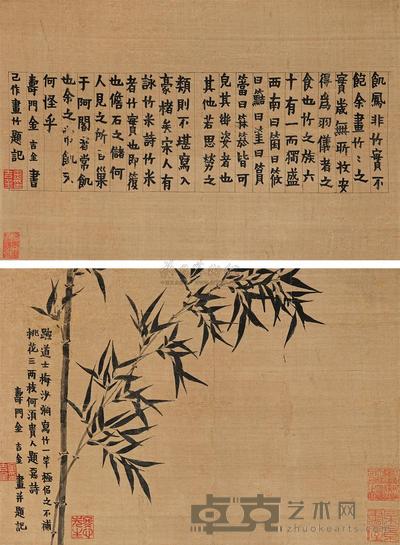 飢鳳非竹實不
飽余畫竹竹之
實歲無所收安
得為羽儀者之
食也竹之族六
十有一而獨盛
西南曰箘曰筱
曰簬曰䇞曰篔
簹曰箖箊皆可
皃其嫵姿者也
其他若思簩之
類則不堪寫入
豪楮矣宋人有
詠竹米詩竹米
者竹實也即復
也儋石之儲何
人見之所曰巢
于阿閣者常飢
也余之亦飢又
何怪乎
壽門金吉金書
己作畫竹題記
跎道士梅沙彌寫竹一竿極俗之不補
桃花三兩枝何須貴人題惡詩
壽門金吉金畫并題記
卓克艺术网
www.zhuokearts.com